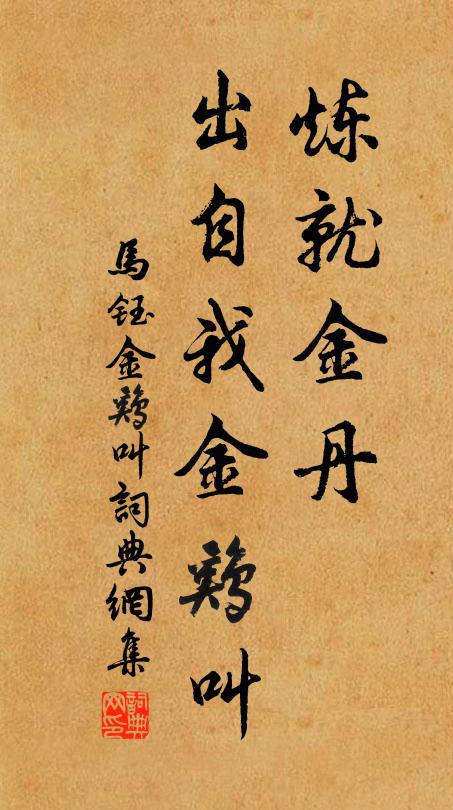 炼就金丹
出自我金鷄叫
馬鈺金鷄叫詞典網集
詞典网印